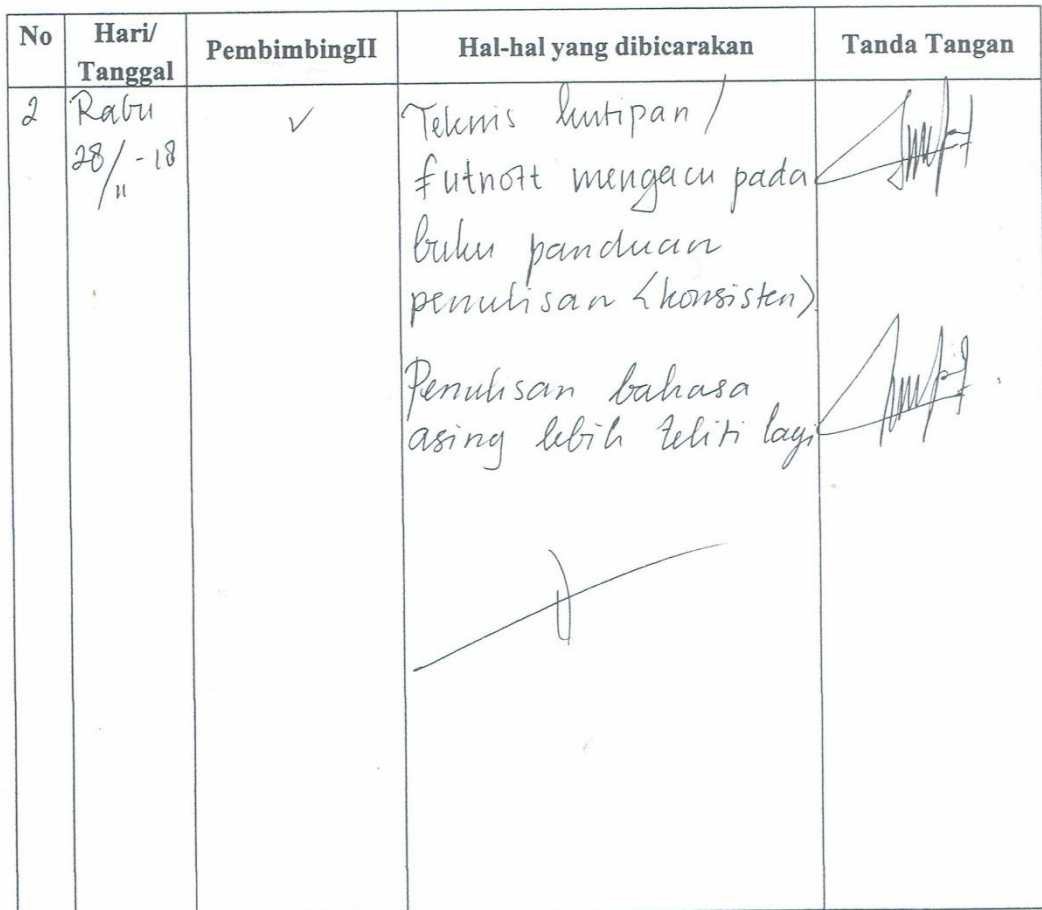 No Hari/ Tanggal PembimbingII Hal-hal yang dibicarakan Tanda Tangan
2 Rabu ✓ Teknis kutipan /
28/11 - 18 futnott mengacu pada
buku panduan
penulisan <konsisten>.
Penulisan bahasa
asing lebih teliti lagi